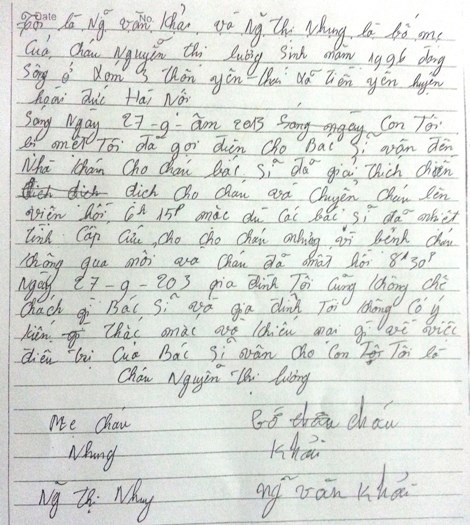 Date No.
Tôi là Ng~ văn Khải và Ng~ Thị Nhung là bố mẹ
của cháu Nguyễn Thị lường Sinh năm 1996 đang
Sống ở Xóm 3 thôn yên thái Xã Tiền yên huyện
hoài đức Hà Nội
Sáng Ngày 27-9- âm 2013 Sáng ngày Con Tôi
bị mệt Tôi đã gọi điện cho Bác Sĩ vân đến
Nhà Khám Cho cháu bác Sĩ đã giải thích
dịch cho cháu và Chuyển cháu lên
viện hồi 6h 15p mặc dù các bác Sĩ đã nhiệt
tình Cấp Cứu cho cho cháu nhưng vì bệnh cháu
không qua mới cháu đã mất hồi 8h30p
Ngày 27-9-203 gia đình Tôi Cũng không chê
trách gì Bác Sĩ và gia đình Tôi không có ý
kiến gì Thắc mắc và khiếu nại gì về việc
điều trị Của Bác Sĩ vân cho Con Tôi là
Cháu Nguyễn Thị lường
Mẹ cháu Bố cháu
Nhung Khải
Ng~ Thị Nhung Ng~ văn Khải